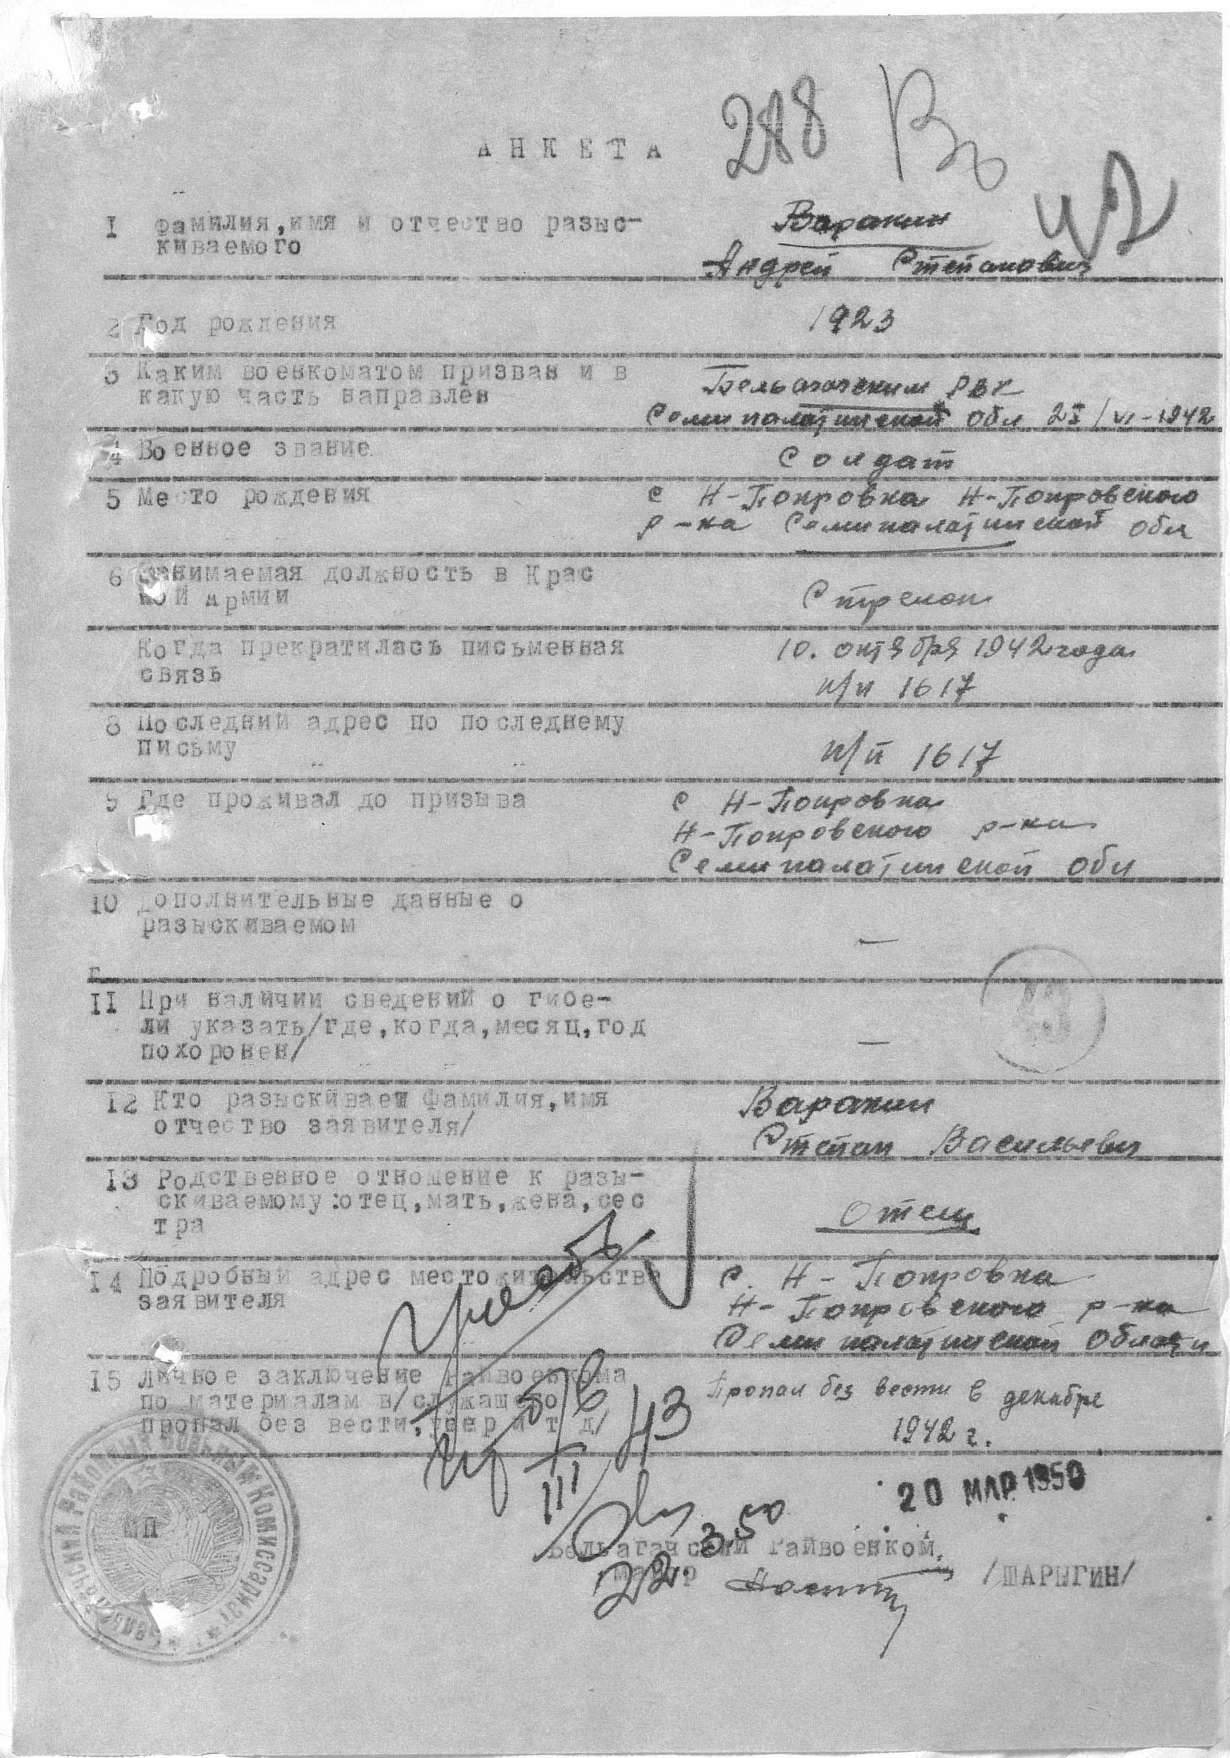 288 Вб
42
АНКЕТА
I Фамилия,имя и отчество разыс-
киваемого
Варакин
Андрей Степанович
2 Год рождения
1923
3 Каким военкоматом призван и в
какую часть направлен
Бельагачским РВК
Семипалатинской обл 2I/VI-1942
4 Военное звание
Солдат
5 Место рождения
с Н-Покровка Н-Покровского
р-на Семипалатинской обл
6 Занимаемая должность в Крас
ной Армии
Стрелок
Когда прекратилась письменная
связь
10. октября 1942 года
п/п 1617
8 Последний адрес по последнему
письму
п/п 1617
9 Где проживал до призыва
с Н-Покровка
Н-Покровского р-на
Семипалатинской обл
10 Дополнительные данные о
разыскиваемом
—
II При наличии сведений о гибе-
ли указать/где,когда,месяц,год
похоронен/
—
I2 Кто разыскивает фамилия,имя
отчество заявителя/
Варакин
Степан Васильевич
I3 Родственное отношение к разы-
скиваемому:отец,мать,жена,сес
тра
отец
I4 Подробный адрес местожительства
заявителя
с. Н-Покровка
Н-Покровского р-на
Семипалатинской области
I5 Личное заключение Райвоенкома
по материалам в/служащего
пропал без вести,умер и т д/
Пропал без вести в декабре
1942 г.
III 43
20 МАР 1950
МП
Бельагачский Райвоенком
майор /ШАРЫГИН/
22.3.50